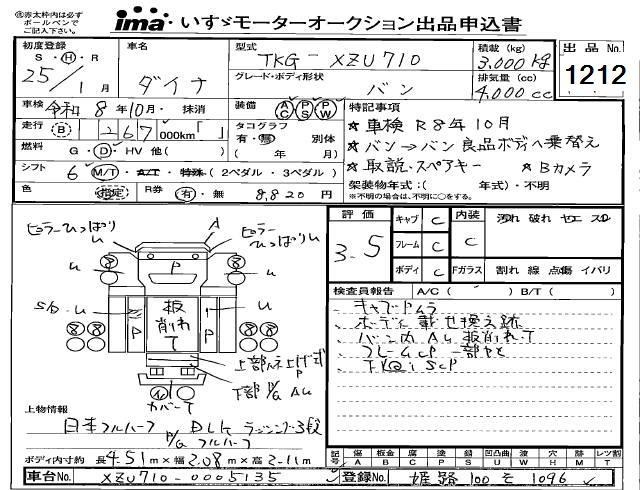 太赤枠内は必ず
ボールペンで
ご記入下さい。
ima いすゞモーターオークション出品申込書
初度登録 S・H・R 25/1月
車名 ダイナ
型式 TKG-XZU710
積載 (kg) 3,000 kg
出品No. 1212
グレード・ボディ形状 バン
排気量 (cc) 4,000 cc
車検 令和 8年10月・抹消
装備 AC PS PW
特記事項
★車検 R8年10月
走行 B 267 000km「 」
タコグラフ 有・無 別体 ( 年 月)
★バン→バン良品ボディへ乗替え
燃料 G・D・HV 他( )
★取説・スペアキー ★Bカメラ
シフト 6 M/T・A/T・特殊(2ペダル・3ペダル)
架装物年式:( 年式)・不明
※不明の場合は、不明に○をする。
色 指定 R券 有・無 8,820円
評価 3.5
キャブ C
フレーム C
ボディ C
内装 C 汚れ 破れ ヤエ スレ
Fガラス 割れ 線 点傷 イバリ
検査員報告 A/C( ) B/T( )
キャブ下ムラ
ボディ載せ換え跡
バン内AU 板削れT
フレームCP一部ヤセ
下廻りSCP
ピラーひっぱりU
A
ピラーひっぱりU
U
U
P
8
8
8
8
S/D
U
P
板削れT
P
U
上部ネ上げ式P
下部PG AU
カバーT
上物情報
日本フルハーフ DLK ラッシング3段
P/G フルハーフ
ボディ内寸 長 4.51m×幅 2.08m×高 2.11m
記号 傷A 板金B 腐C 塗P 錆S 凹凸曲U 波W 穴H 跡M レツ割T
車台No. XZU710-0005135
登録No. 姫路 100 そ 1096